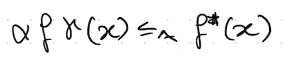 α f γ(x) ≤ₐ f*(x)